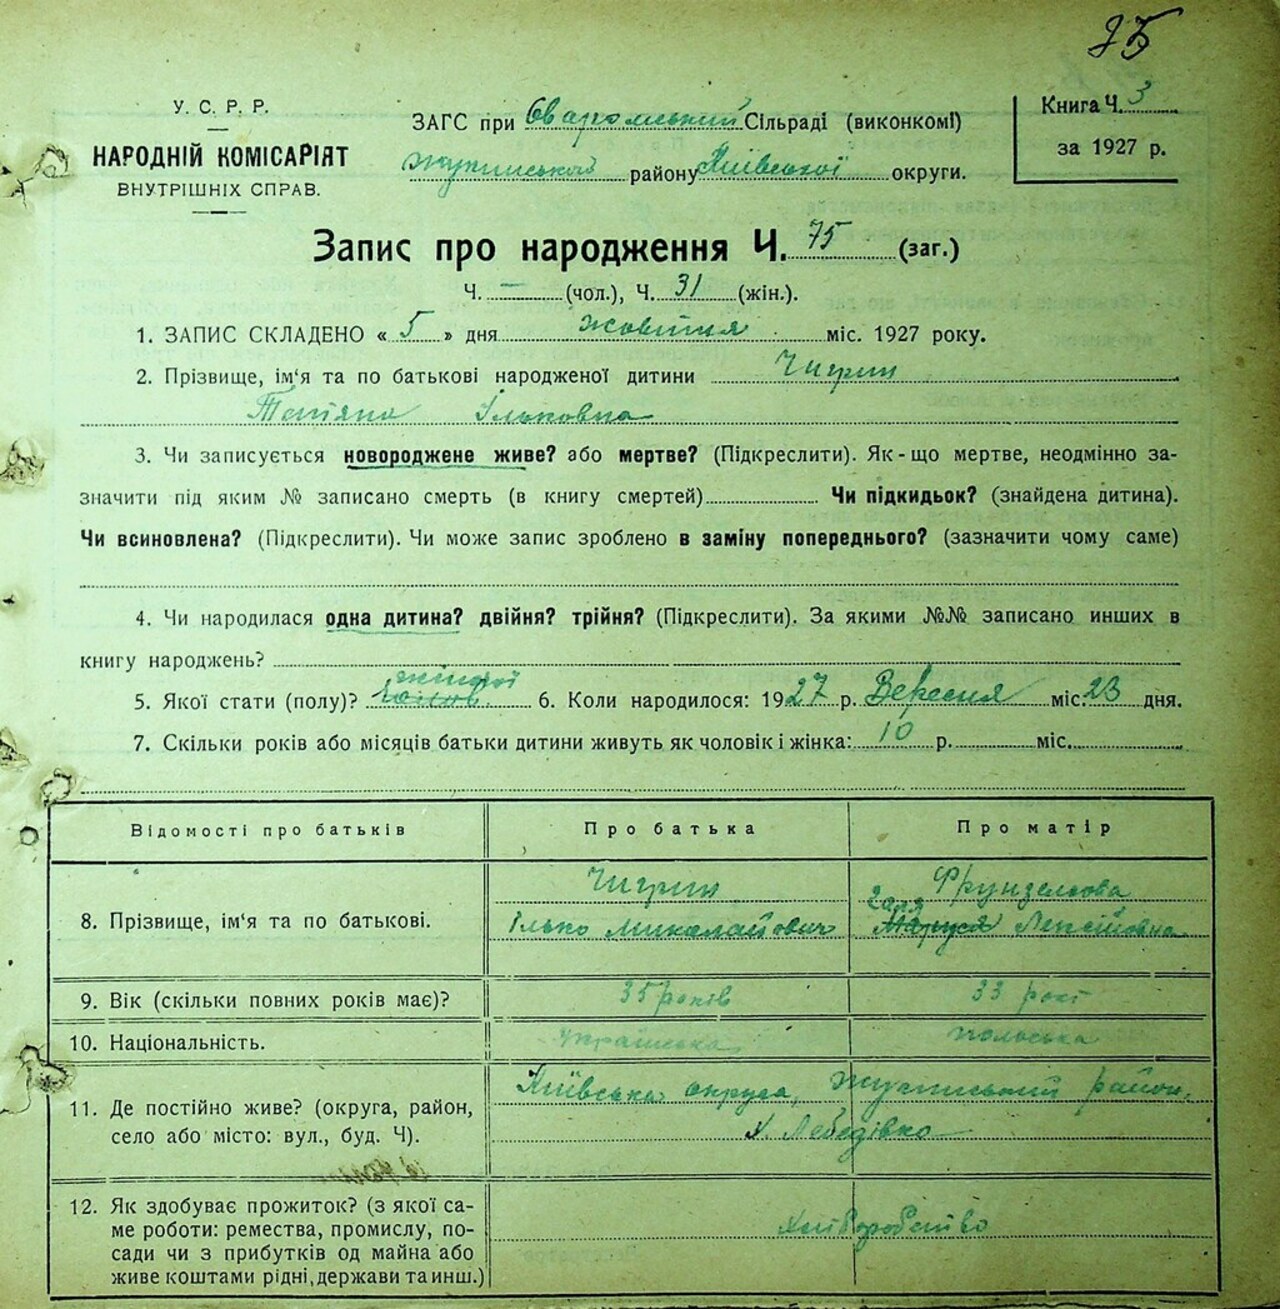 25
У. С. Р. Р.
НАРОДНІЙ КОМІСАРІЯТ
ВНУТРІШНІХ СПРАВ.
ЗАГС при Сваромський Сільраді (виконкомі)
району Київської округи.
Книга Ч. 3
за 1927 р.
Запис про народження Ч. 75 (заг.)
Ч. — (чол.), Ч. 31 (жін.).
1. ЗАПИС СКЛАДЕНО « 5 » дня жовтня міс. 1927 року.
2. Прізвище, ім'я та по батькові народженої дитини Чигрин
Тетяна Ільковна
3. Чи записується новороджене живе? або мертве? (Підкреслити). Як-що мертве, неодмінно за-
значити під яким № записано смерть (в книгу смертей) Чи підкидьок? (знайдена дитина).
Чи всиновлена? (Підкреслити). Чи може запис зроблено в заміну попереднього? (зазначити чому саме)
4. Чи народилася одна дитина? двійня? трійня? (Підкреслити). За якими №№ записано инших в
книгу народжень?
5. Якої стати (полу)? жіночої 6. Коли народилося: 1927 р. Вересня міс. 23 дня.
7. Скільки років або місяців батьки дитини живуть як чоловік і жінка: 10 р. міс.
Відомості про батьків Про батька Про матір
8. Прізвище, ім'я та по батькові. Чигрин
Ілько Миколайович Галя
9. Вік (скільки повних років має)? 35 років 33 рокі
10. Національність. Українська польська
11. Де постійно живе? (округа, район,
село або місто: вул., буд. Ч). Київська округа, район,
Х. Лебедівка
12. Як здобуває прожиток? (з якої са-
ме роботи: ремества, промислу, по-
сади чи з прибутків од майна або
живе коштами рідні, держави та инш.) Хліборобство